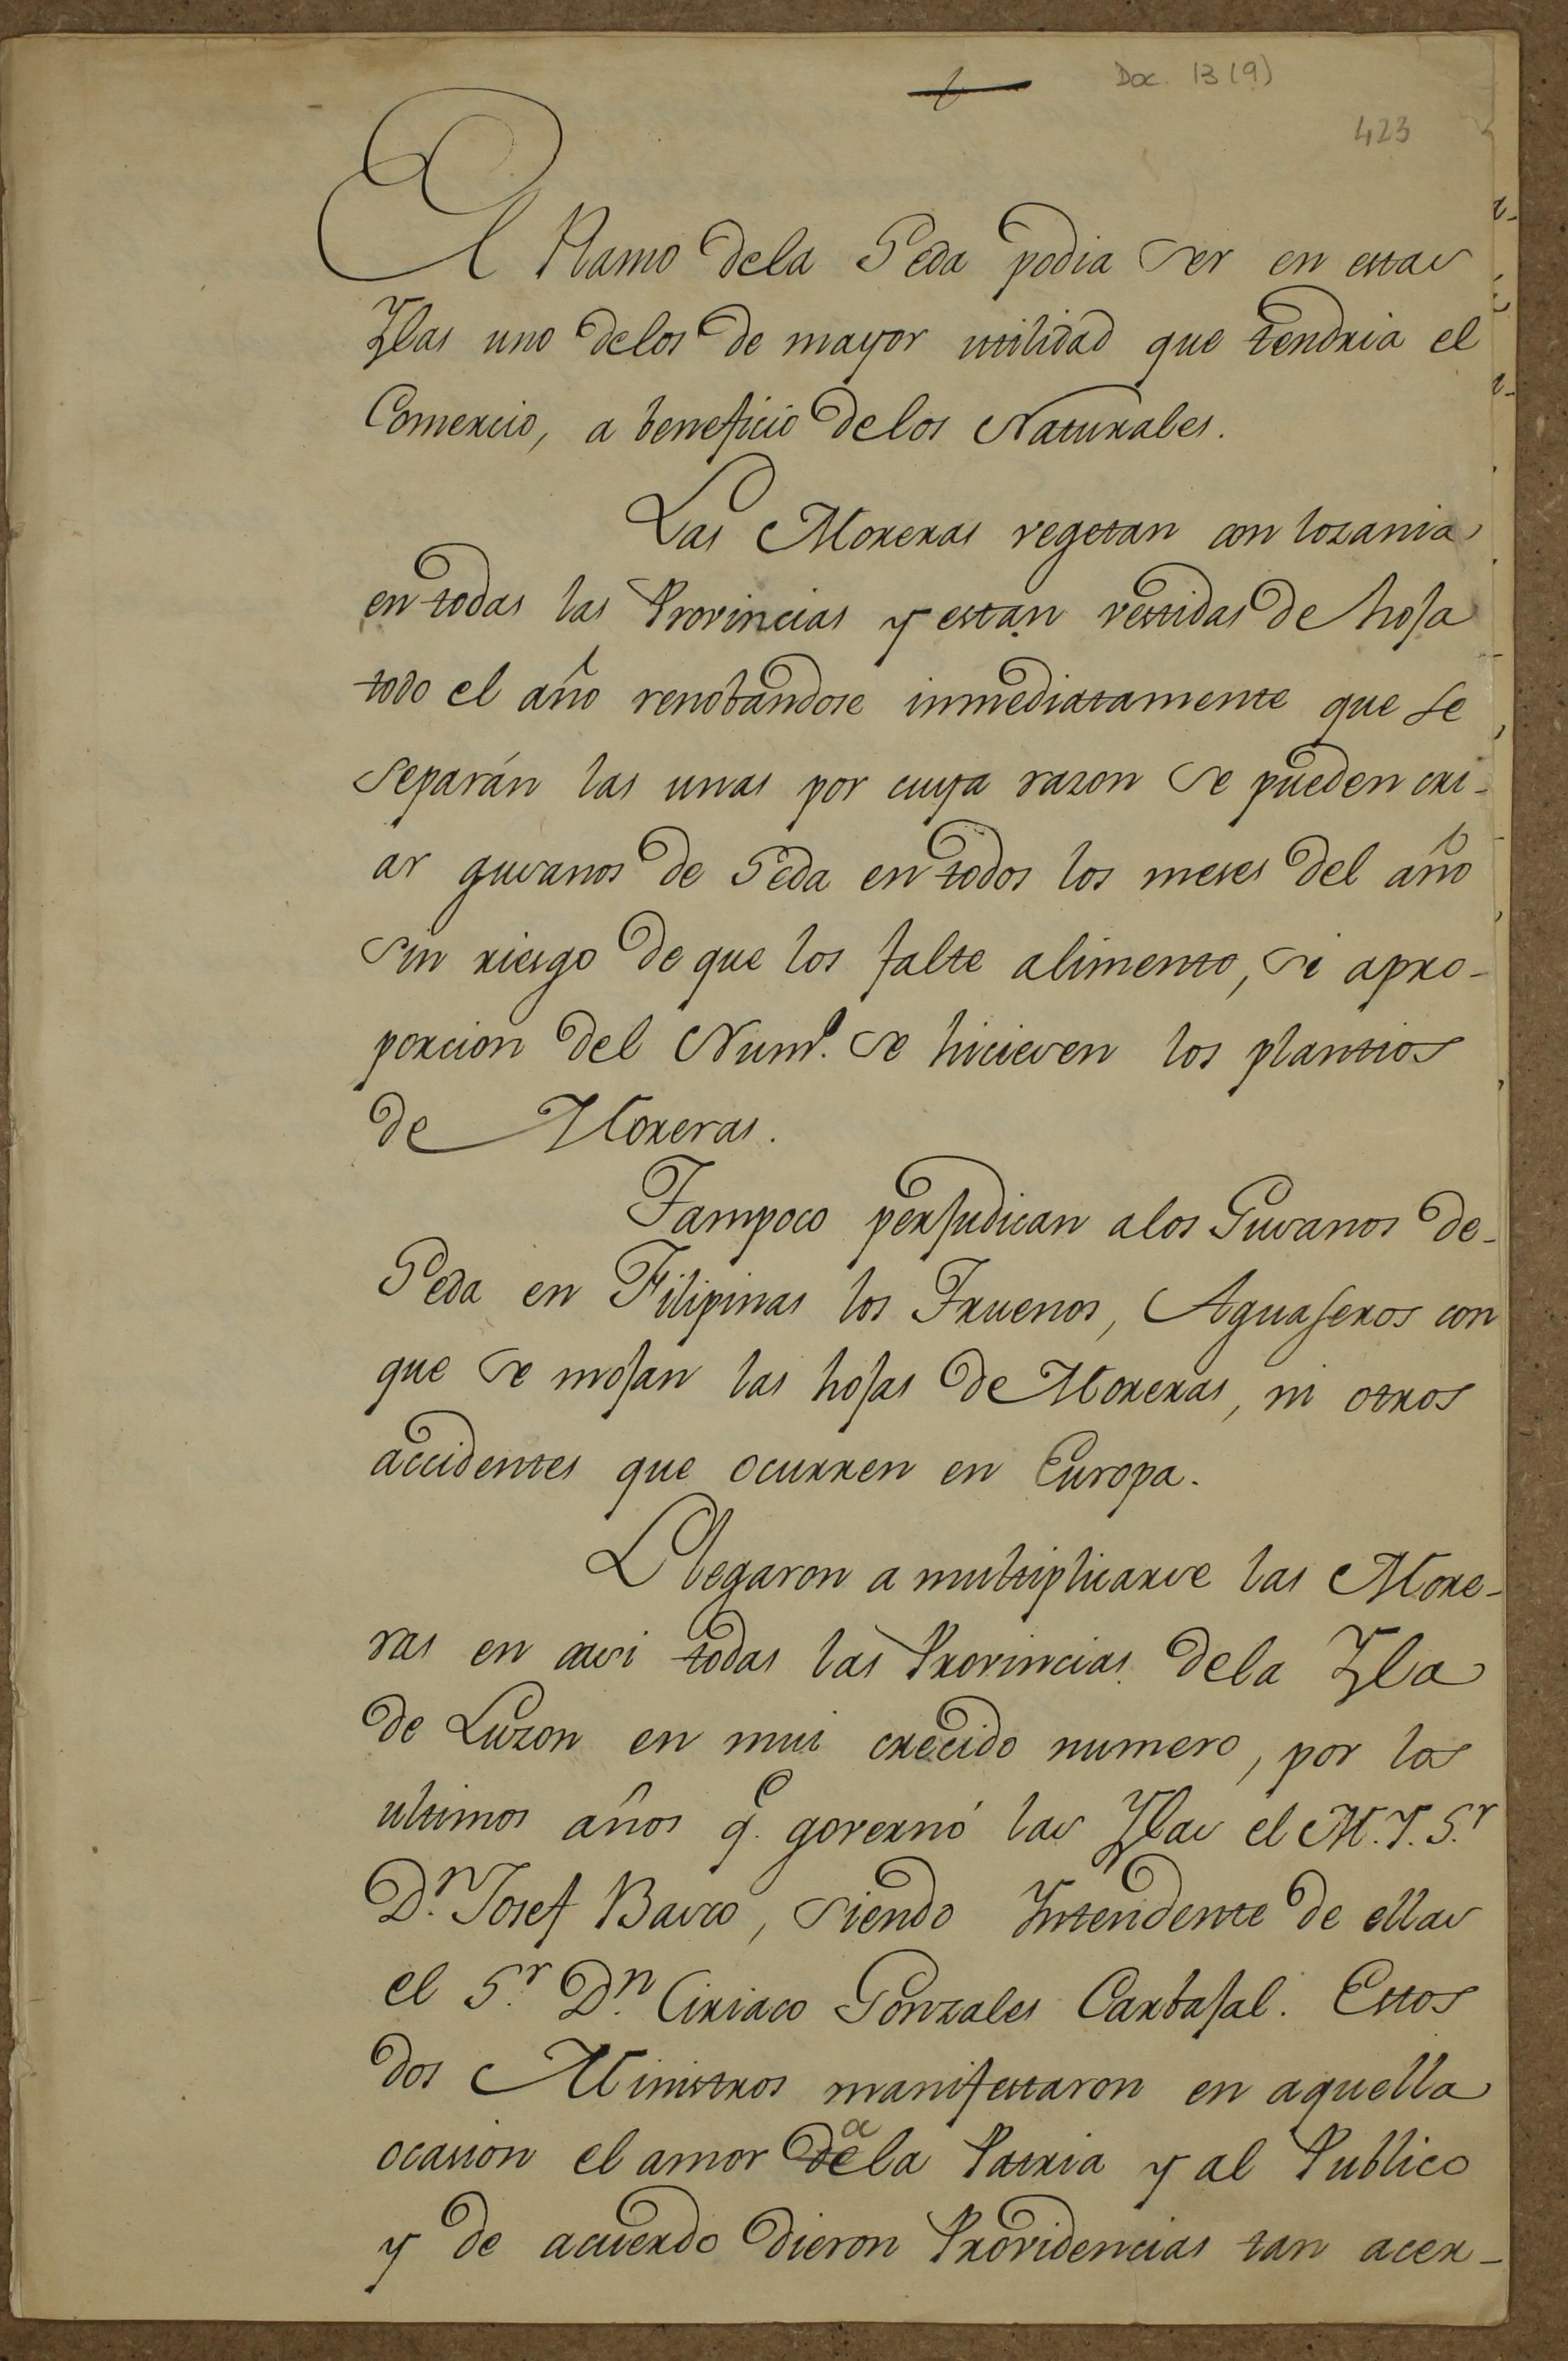 Doc. 13 (9)
423
El Ramo dela Seda podia ser en estas
Yslas uno delos de mayor utilidad que tendria el
Comercio, a beneficio delos Naturales.
Las Moreras vegetan con lozania
en todas las Provincias y estan vestidas de hoja
todo el año renobandose inmediatamente que se
separán las unas por cuya razon se pueden cri-
ar gusanos de Seda en todos los meses del año
sin riesgo de que los falte alimento, si apro-
porcion del Numo. se hiciesen los plantios
de Moreras.
Tampoco perjudican alos Gusanos de-
Seda en Filipinas los Truenos, Aguaseros con
que se mojan las hojas de Moreras, ni otros
accidentes que ocurren en Europa.
Llegaron a multiplicarse las More-
ras en casi todas las Provincias dela Ysla
de Luzon en mui crecido numero, por los
ultimos años q. governó las Yslas el M. Y. S.r
D.n Josef Basco, siendo Yntendente de ellas
el S.r D.n Ciriaco Gonzales Carbajal. Estos
dos Ministros manifestaron en aquella
ocasion el amor a la Patria y al Publico
y de acuerdo dieron Providencias tan acer-